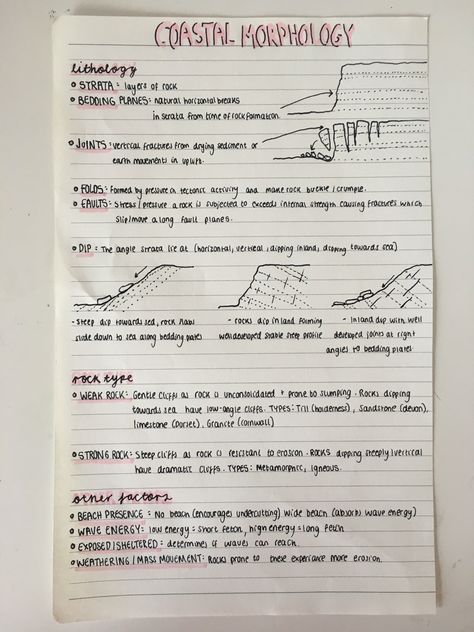 COASTAL MORPHOLOGY
lithology
• STRATA: layers of rock
• BEDDING PLANES: natural horizontal breaks
in strata from time of rock formation.
• JOINTS: vertical fractures from drying sediment or
earth movements in uplift.
• FOLDS: Formed by pressure in tectonic activity and make rock buckle / crumple.
• FAULTS: Stress/pressure a rock is subjected to exceeds internal strength causing fractures which
slip/move along fault planes.
• DIP: The angle strata lie at (horizontal, vertical, dipping inland, dipping towards sea)
- steep dip towards sea, rock slabs
slide down to sea along bedding plates
- rocks dip inland forming
well developed stable steep profile
- inland dip with well
developed joints at right
angles to bedding plates
rock type
• WEAK ROCK: Gentle cliffs as rock is unconsolidated + prone to slumping. Rocks dipping
towards sea have low-angle cliffs. TYPES: Till (holderness), Sandstone (devon),
limestone (Dorset), Granite (cornwall)
• STRONG ROCK: Steep cliffs as rock is resistant to erosion. Rocks dipping steeply/vertical
have dramatic cliffs. TYPES: Metamorphic, igneous.
other factors
• BEACH PRESENCE: No beach (encourages undercutting) wide beach (absorbs wave energy)
• WAVE ENERGY: low energy = short fetch, high energy = long fetch
• EXPOSED/SHELTERED: determines if waves can reach.
• WEATHERING / MASS MOVEMENT: Rocks prone to these experience more erosion.